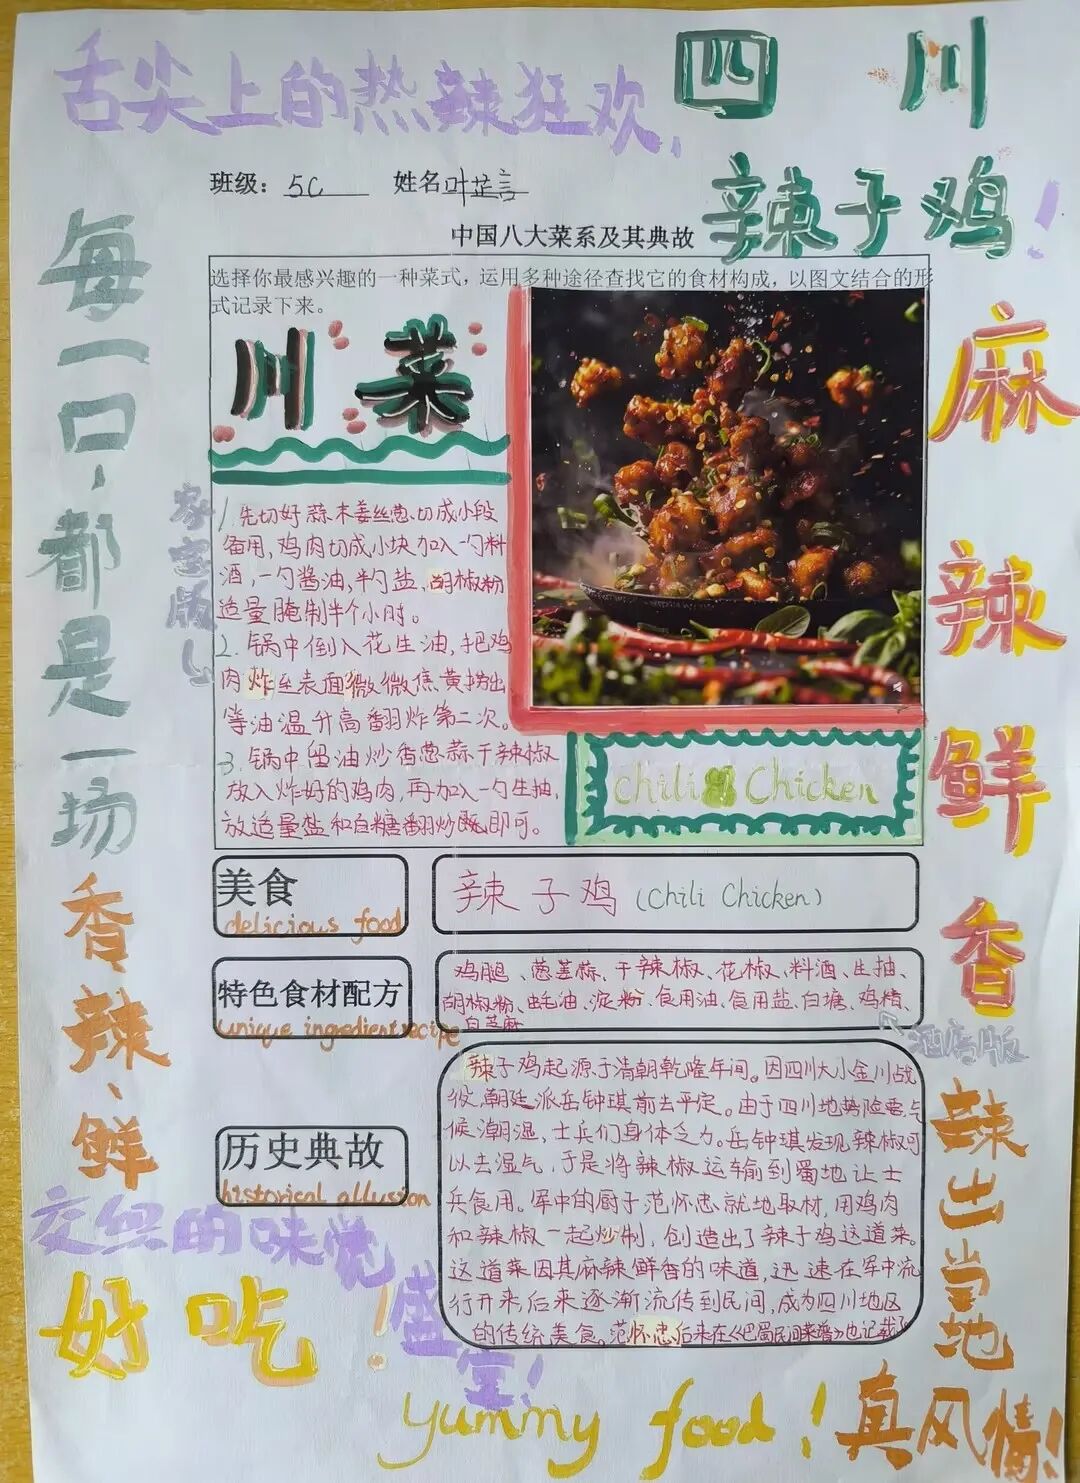 舌尖上的热辣狂欢，
四川
辣子鸡！
班级：5C 姓名 叶芷言
中国八大菜系及其典故
选择你最感兴趣的一种菜式，运用多种途径查找它的食材构成，以图文结合的形
式记录下来。
川菜
1.先切好蒜末姜丝葱、切成小段
备用，鸡肉切成小块加入一勺料
酒，一勺酱油，半勺盐，胡椒粉
适量腌制半个小时。
2.锅中倒入花生油，把鸡
肉炸至表面微微焦黄捞出
等油温升高翻炸第二次。
3.锅中留油炒香葱蒜干辣椒
放入炸好的鸡肉，再加入一勺生抽，
放适量盐和白糖翻炒既即可。
家宝版
Chili Chicken
美食
delicious food
辣子鸡（Chili Chicken）
特色食材配方
unique ingredient recipe
鸡腿、葱姜蒜、干辣椒、花椒、料酒、生抽、
胡椒粉、蚝油、淀粉、食用油、食用盐、白糖、鸡精、
白芝麻
酒店版
历史典故
historical allusion
辣子鸡起源于清朝乾隆年间。因四川大小金川战
役，朝廷派岳钟琪前去平定。由于四川地势险要，气
候潮湿，士兵们身体乏力。岳钟琪发现辣椒可
以去湿气，于是将辣椒运输到蜀地让士
兵食用。军中的厨子范怀忠就地取材，用鸡肉
和辣椒一起炒制，创造出了辣子鸡这道菜。
这道菜因其麻辣鲜香的味道，迅速在军中流
行开来，后来逐渐流传到民间，成为四川地区
的传统美食。范怀忠后来在《巴蜀民间菜谱》也记载了
每一口，都是一场
香、辣、鲜
交织的味觉
盛宴！
好吃！
麻辣鲜香
辣出当地
真风情！
yummy food！